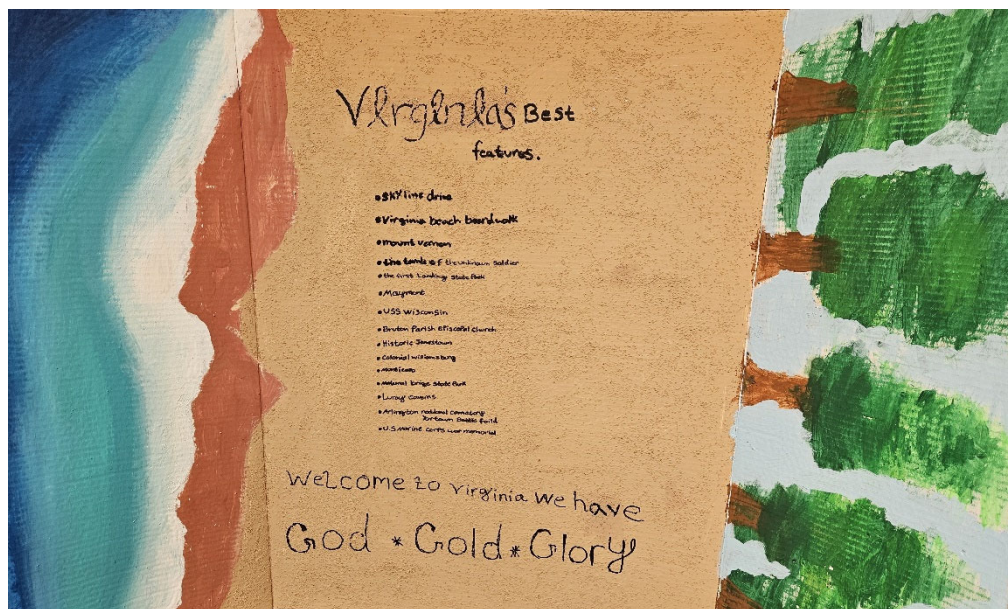 Virginia's Best
features.
• Skyline drive
• Virginia beach boardwalk
• mount vernon
• the tomb of the unknown Soldier
• the first Landing State Park
• Maymont
• USS Wisconsin
• Bruton Parish episcopal church
• Historic Jamestown
• Colonial williamsburg
• Natural brige State Park
• Luray
• Arlington national
Yorktown Battle
• U.S. marine corps war memorial
Welcome to virginia we have
God * Gold * Glory